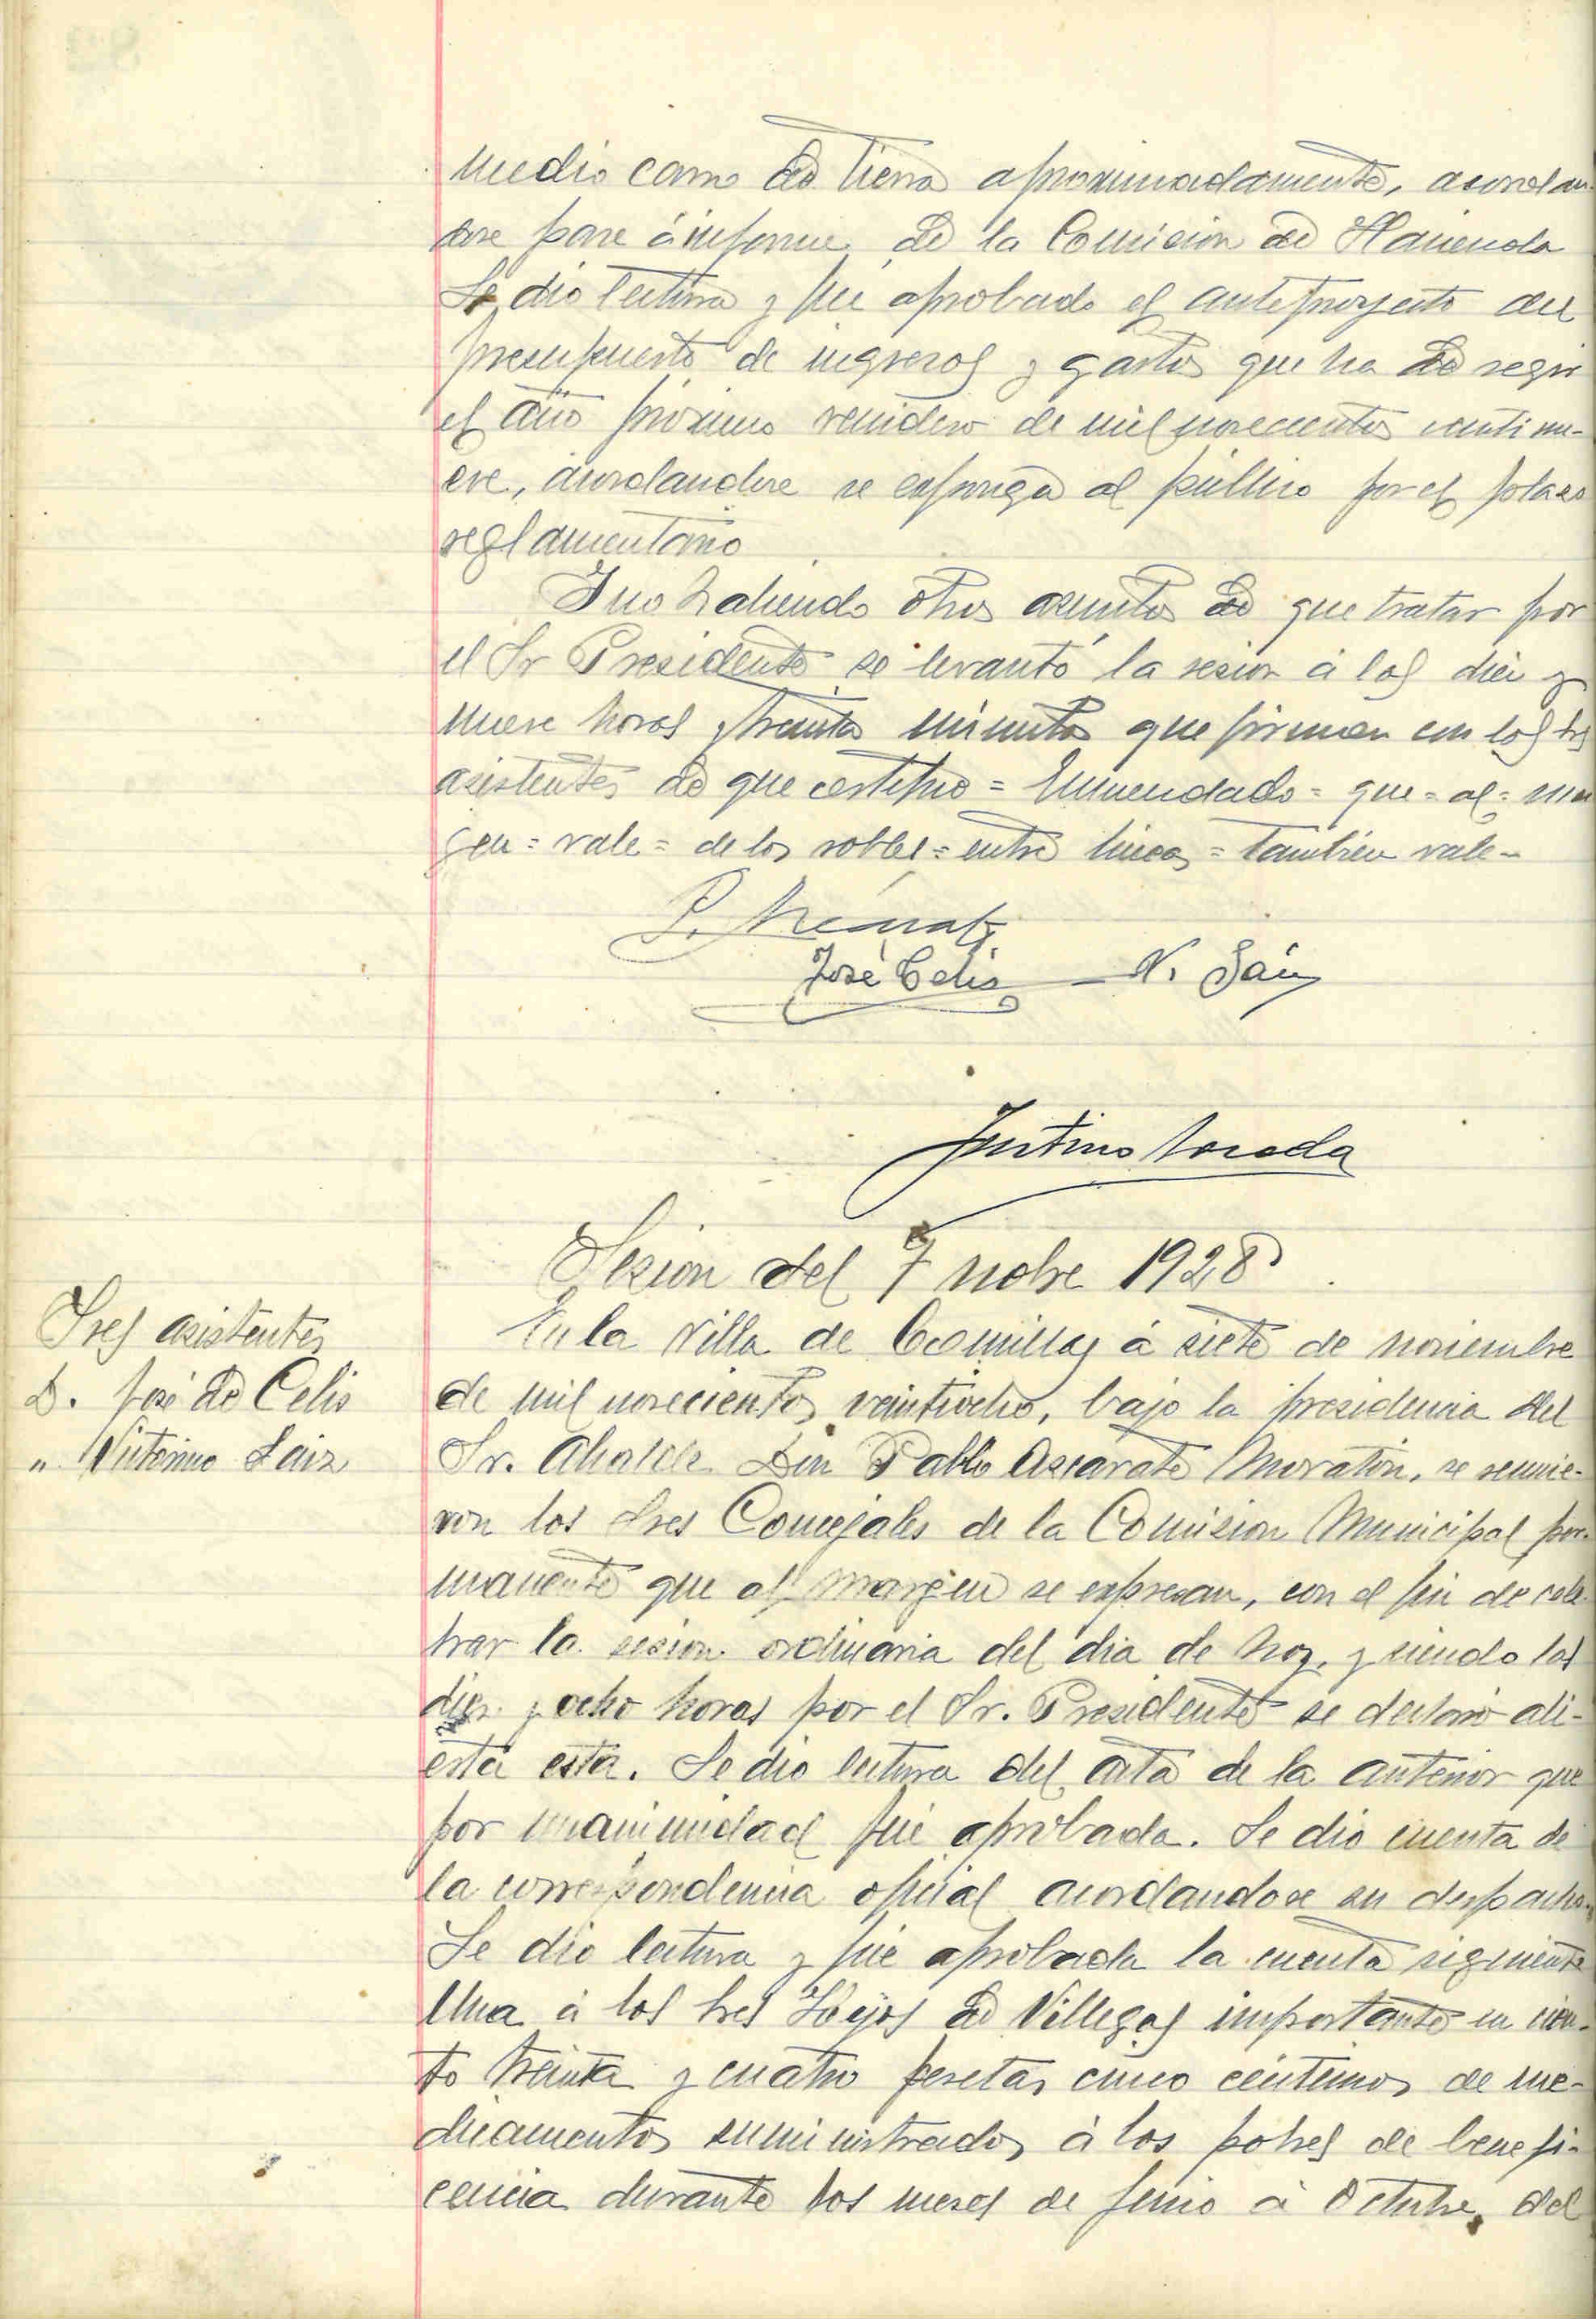 medio carro de tierra aproximadamente, acordan-
dose pase á informe de la Comision de Hacienda
Se dio lectura y fué aprobado el anteproyecto del
presupuesto de ingresos y gastos que ha de regir
el año próximo venidero de mil novecientos veintinu-
eve, acordandose se exponga al público por el plazo
reglamentario
Y no habiendo otros asuntos de que tratar por
el Sr Presidente se levantó la sesion á las diez y
nueve horas y treinta minutos que firman con los Sres
asistentes de que certifico = Enmendado = que = al = mar
gen = vale = de los robles = entre lineas = tambien vale -
P. Azcárate
José Celis N. Sáiz
Justino Posada
Sesion del 7 nobre 1928
Sres asistentes
D. José de Celis
" Victorino Saiz
En la Villa de Comillas á siete de noviembre
de mil novecientos veintiocho, bajo la presidencia del
Sr. Alcalde Don Pablo Azcarate Moratin, se reunie-
ron los Sres Concejales de la Comision Municipal per-
manente que al margen se expresan, con el fin de cele-
brar la sesion ordinaria del dia de hoy, y siendo las
diez y ocho horas por el Sr. Presidente se declaró abi-
erta esta. Se dio lectura del acta de la anterior que
por unanimidad fué aprobada. Se dio cuenta de
la correspondencia oficial acordandose su despacho.
Se dio lectura y fué aprobada la cuenta siguiente
Una á los Sres Hijos de Villegas importante en cien-
to treinta y cuatro pesetas cinco céntimos de me-
dicamentos suministrados á los pobres de benefi-
cencia durante los meses de Junio á Octubre, del